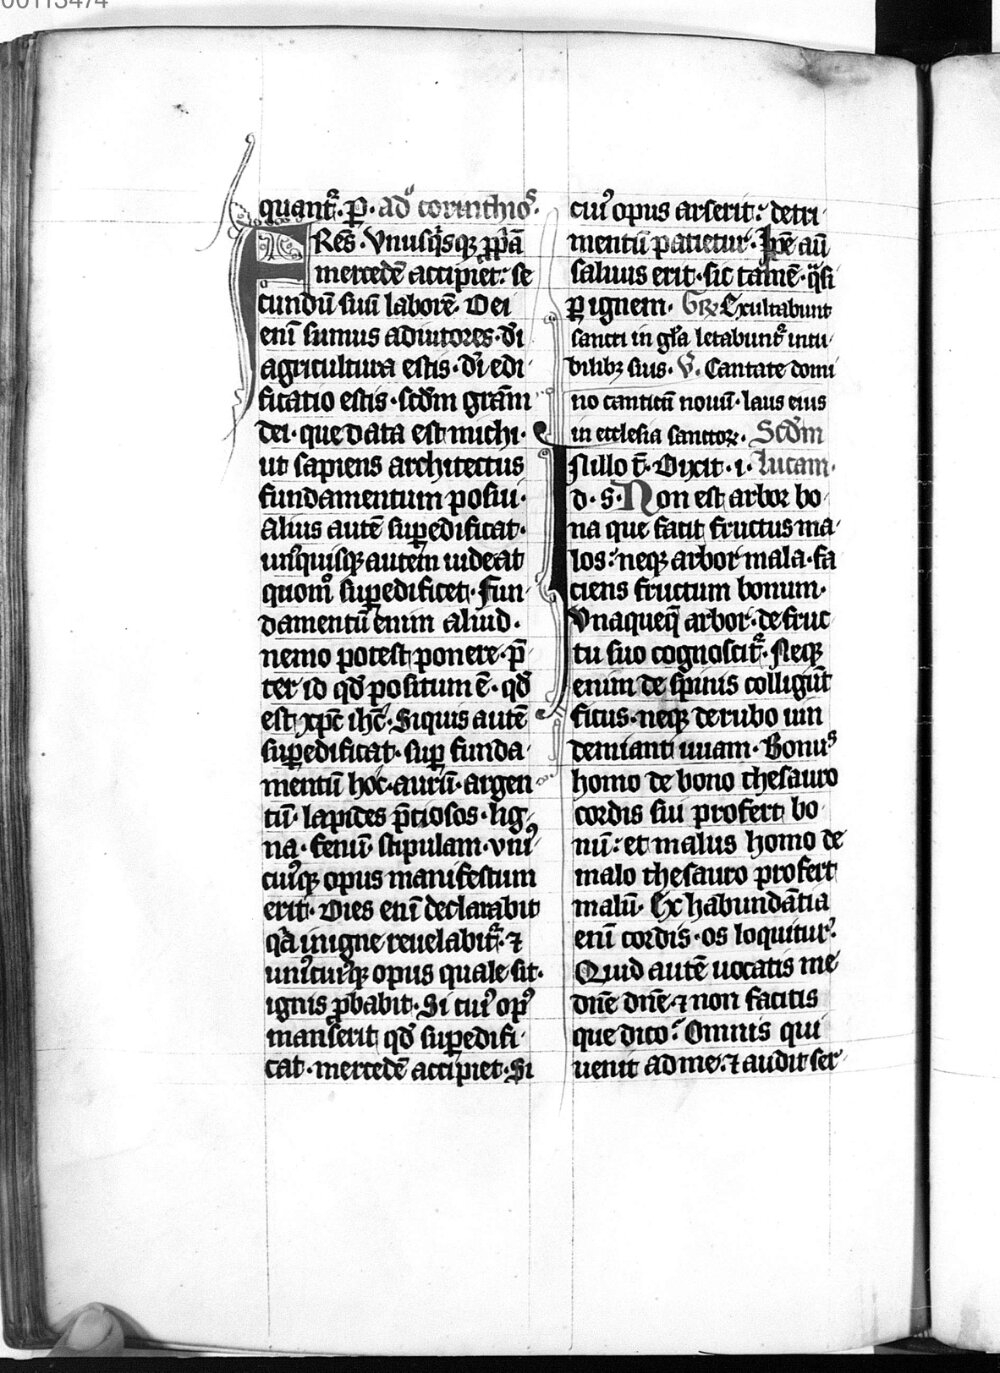 00113474
quant᷑. P. ad corinthios.
FRēs. Vnusqisqꝫ ꝓpiā
mercedē accipiet: se
cundū suū laborē. Dei
enī sumus adiutores. dī
agricultura estis. dī edi
ficatio estis. scdm̄ grām
dei. que data est michi.
ut sapiens architectus
fundamentum posui.
Alius autē suꝑedificat.
unꝰquisqꝫ autem uideat
quomō suꝑedificet. Fun
damentū enim aliud.
nemo potest ponere. p̄
ter id qd̄ positum ē. qd̄
est xp̄c ih̄c. Siquis autē
suꝑedificat. suꝑ funda
mentū hoc. aurū. argen
tū. lapides p̄ciosos. lig
na. fenū. stipulam. vniꝰ
cuiꝰqꝫ opus manifestum
erit. Dies enī declarabit
qā in igne reuelabit᷑. ⁊
uniꝰcuiꝰqꝫ opus quale sit.
ignis ꝓbabit. Si cuiꝰ opꝰ
manserit qd̄ suꝑedifi
cat. mercedē accipiet. Si
cuiꝰ opus arserit: detri
mentū patietur. Ip̄e aū
saluus erit. sic tamē. qasi
ꝑ ignem. GR Exultabunt
sancti in glā. letabunt᷑ in cu
bilibꝫ suis. V. Cantate domi
no canticū nouū. laus eius
in ecclesia sanctoꝝ. Scdm̄
INillo t̄. Dixit. i. Lucam.
d. s. Non est arbor bo
na que facit fructus ma
los: neqꝫ arbor mala. fa
ciens fructum bonum.
Vnaqueqꝫ arbor. de fruc
tu suo cognoscit᷑. Neqꝫ
enim de spinis colligūt
ficus. neqꝫ de rubo uin
demiant uuam. Bonus
homo de bono thesauro
cordis sui profert bo
nū: et malus homo de
malo thesauro profert
malū. Ex habundātia
enī cordis. os loquitur.
Quid autē uocatis me
dn̄e dn̄e. ⁊ non facitis
que dico? Omnis qui
uenit ad me. ⁊ audit ser